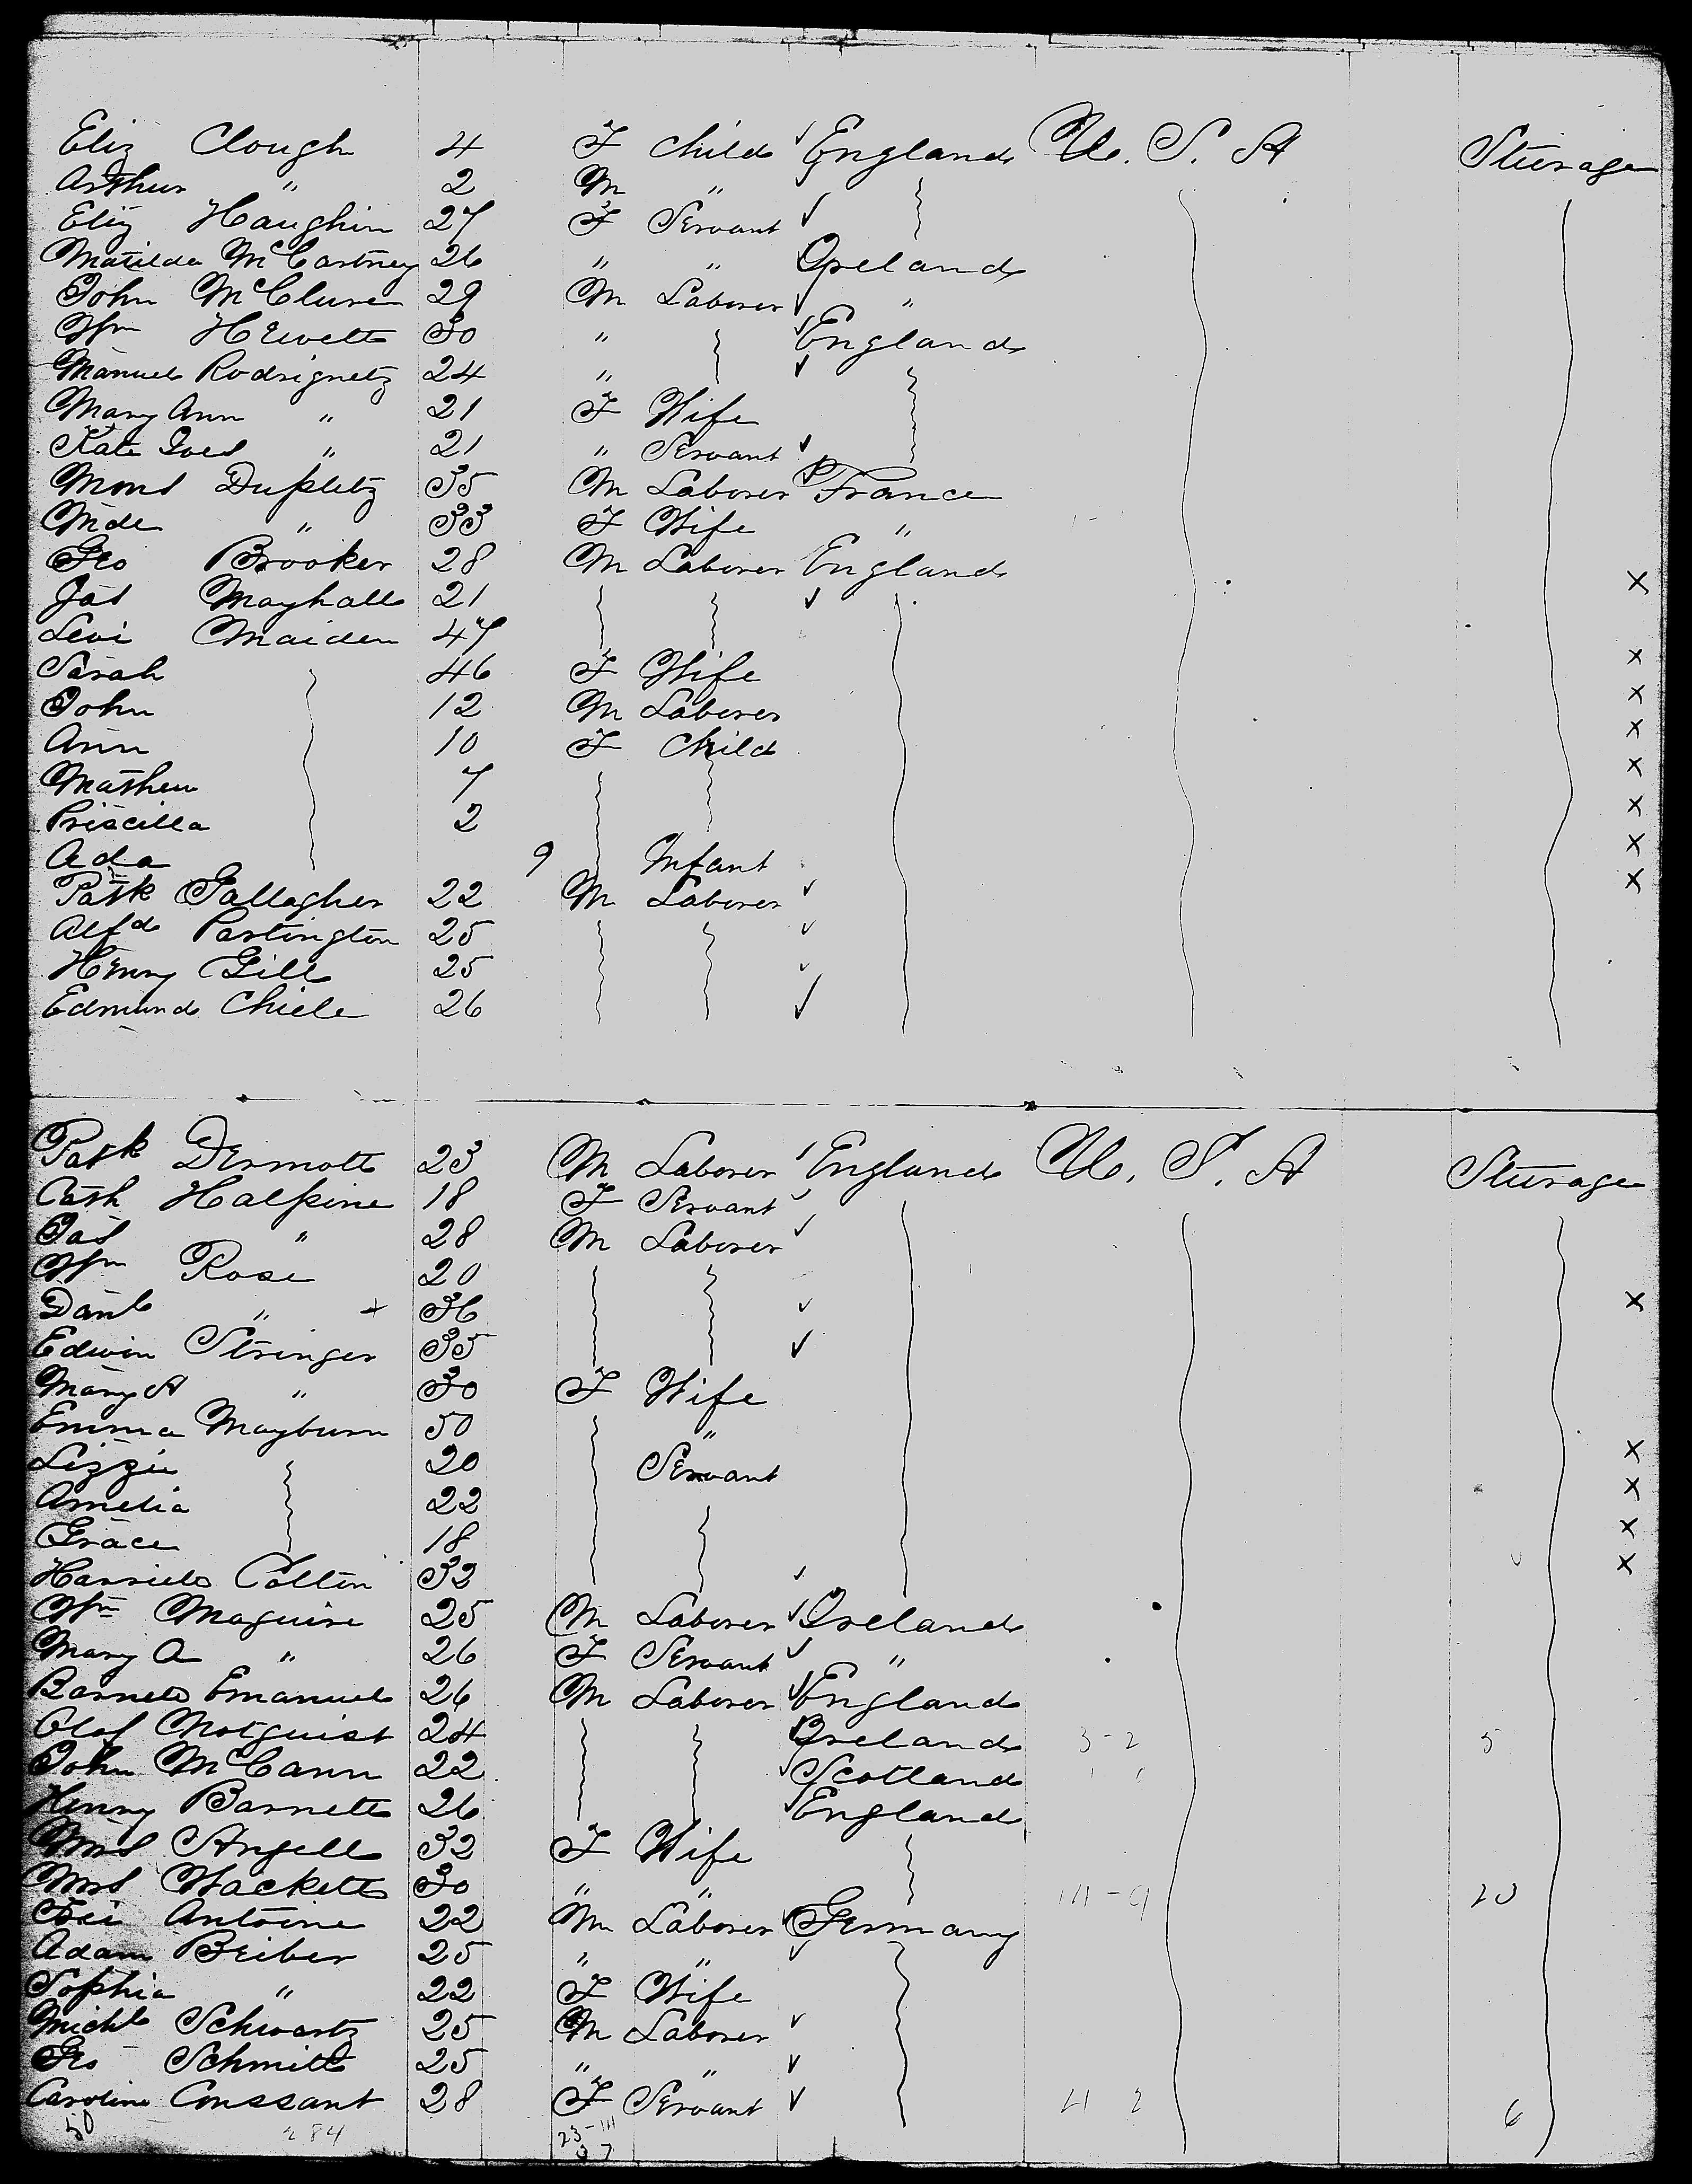 Eliz Clough 4 F Child ✓ England U. S. A Steerage
Arthur " 2 M " ✓
Eliz Haughin 27 F Servant ✓
Matilda McCartney 26 " " Ireland
John McClure 29 M Laborer ✓ "
Wm Hewett 30 " ✓ England
Manuel Rodriguetz 24 " ✓
Mary Ann " 21 F Wife
Kate Ives " 21 " Servant ✓
Mons Dupletz 35 M Laborer ✓ France
Mde " 33 F Wife "
Geo Brooker 28 M Laborer England
Jas Mayhall 21 ✓ x
Levi Maiden 47
Sarah 46 F Wife x
John 12 M Laborer x
Ann 10 F Child x
Mathew 7 x
Priscilla 2 x
Ada 9 Infant x
Patk Gallagher 22 M Laborer ✓ x
Alfd Partington 25 ✓
Henry Gill 25 ✓
Edmund Chiele 26 ✓
Patk Dermott 23 M Laborer ✓ England U. S. A Steerage
Cath Halpine 18 F Servant ✓
Jas " 28 M Laborer ✓
Wm Rose 20
Danl " + 36 ✓ x
Edwin Stringer 35 ✓
Mary A " 30 F Wife
Emma Mayburn 50 " x
Lizzie 20 Servant x
Amelia 22 x
Grace 18 x
Harriet Colton 32 ✓
Wm Maguire 25 M Laborer ✓ Ireland
Mary A " 26 F Servant ✓ "
Barnett Emanuel 26 M Laborer ✓ England
Olof Motquist 24 Ireland 3-2 5
John McCann 22 ✓ Scotland
Henry Barnett 26 ✓ England
Mrs Angell 32 F Wife
Mrs Hackett 30 " " 20
Antoine 22 M Laborer ✓ Germany
Adam Beiber 25 " " ✓
Sophia " 22 F Wife
Michl Schwartz 25 M Laborer ✓
Geo Schmitt 25 " " ✓
Caroline Conssant 28 F Servant ✓ 6
50 284